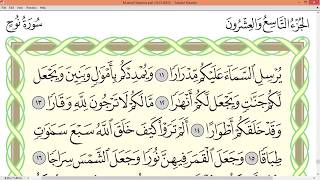 الجزء التاسع والعشرون
سورة نوح
يُرْسِلِ السَّمَاءَ عَلَيْكُم مِّدْرَارًا ١١ وَيُمْدِدْكُم بِأَمْوَالٍ وَبَنِينَ وَيَجْعَل
لَّكُمْ جَنَّاتٍ وَيَجْعَل لَّكُمْ أَنْهَارًا ١٢ مَّا لَكُمْ لَا تَرْجُونَ لِلَّهِ وَقَارًا ١٣
وَقَدْ خَلَقَكُمْ أَطْوَارًا ١٤ أَلَمْ تَرَوْا كَيْفَ خَلَقَ اللَّهُ سَبْعَ سَمَاوَاتٍ
طِبَاقًا ١٥ وَجَعَلَ الْقَمَرَ فِيهِنَّ نُورًا وَجَعَلَ الشَّمْسَ سِرَاجًا ١٦